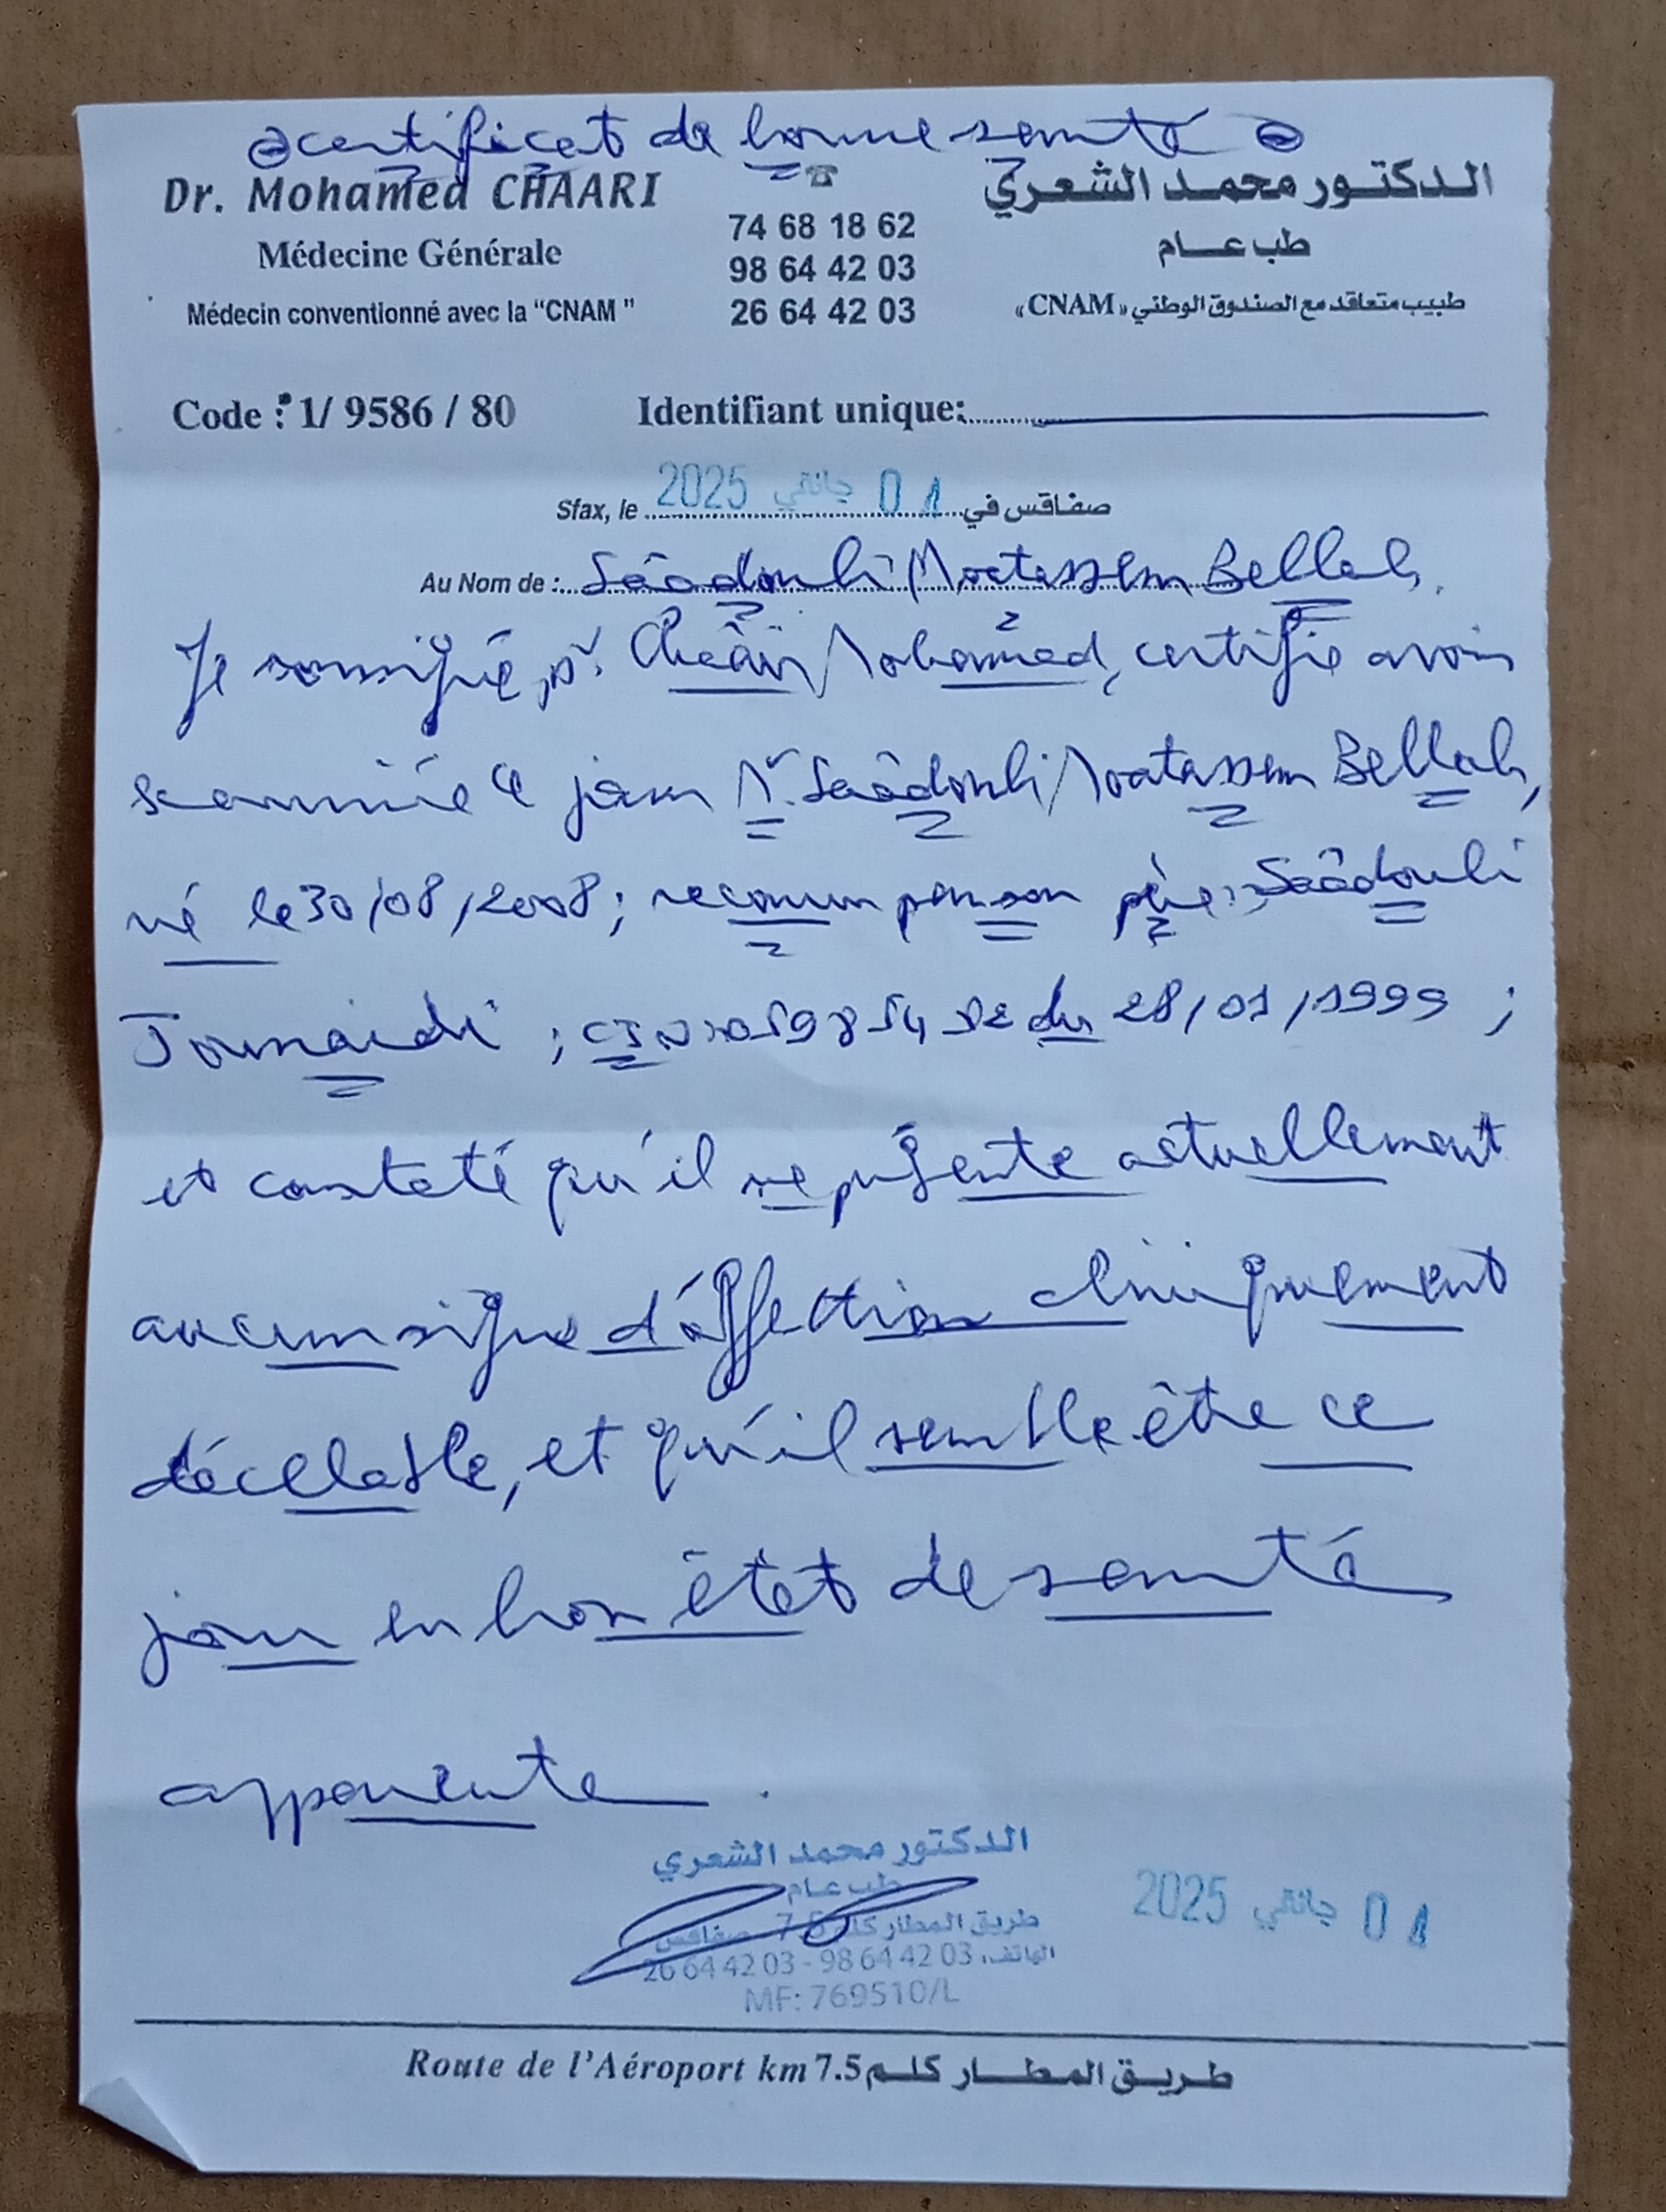 certificat de bonne santé
Dr. Mohamed CHAARI
Médecine Générale
Médecin conventionné avec la "CNAM "
74 68 18 62
98 64 42 03
26 64 42 03
الدكتور محمد الشعري
طب عام
طبيب متعاقد مع الصندوق الوطني «CNAM»
Code : 1/ 9586 / 80
Identifiant unique:
Sfax, le 2025 جانفي 01 صفاقس في
Au Nom de : Saâdouli Moatassem Bellah
Je soussigné, Dr. Chaâri Mohamed, certifie avoir
examiné ce jour Mr. Saâdouli Moatassem Bellah,
né le 30/08/2008; reconnu par son père: Saâdouli
; CIN du 28/01/1999 ;
et constaté qu'il ne présente actuellement
aucun signe d'affection cliniquement
décelable, et qu'il semble être ce
jour en bon état de santé
apparente.
الدكتور محمد الشعري
طب عام
طريق المطار كلم 7.5 صفاقس
الهاتف: 98 64 42 03 - 26 64 42 03
MF: 769510/L
2025 جانفي 01
Route de l'Aéroport km 7.5 طريق المطار كلم